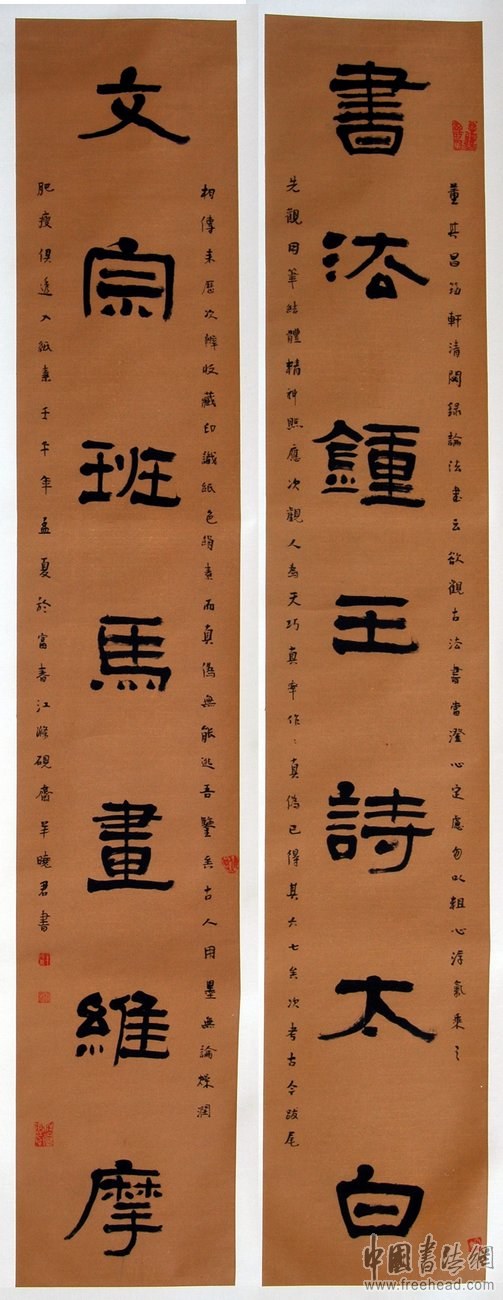 書法鍾王詩太白
董其昌筠軒清閟錄論法書云欲觀古法書當澄心定慮勿以粗心浮氣乘之
先觀用筆結體精神照應次觀人為天巧真率作々真偽已得其六七矣次考古今跋尾
文宗班馬畫維摩
相傳來歷次辨收藏印識紙色絹素而真偽無能逃吾鑒矣古人用墨無論燥潤
肥瘦俱透入紙素壬午年孟夏於富春江滌硯齋羊曉君書
中國書法網
www.freehead.com